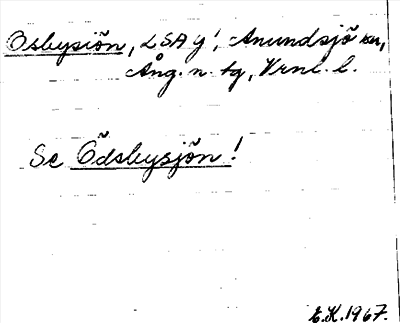 Osbysiön, LSA y!, Anundsjö sn,
Ång. n. tg, Vrnl. l.
Se Ödsbysjön!
E.K. 1967.